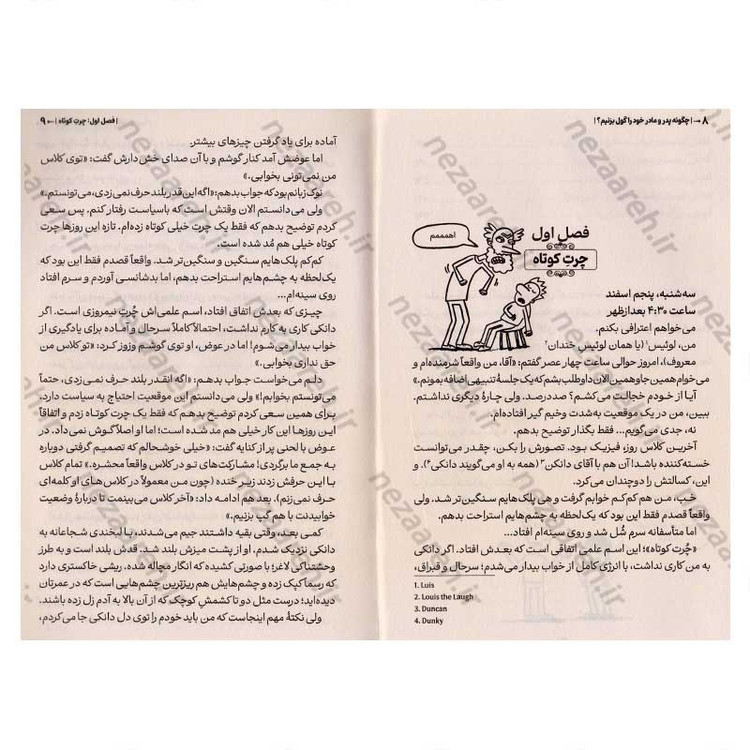 ۸ ← | چگونه پدر و مادر خود را گول بزنیم؟ |
فصل اول
چرت کوتاه
اهمممم
سه‌شنبه، پنجم اسفند
ساعت ۴:۳۰ بعدازظهر
می‌خواهم اعترافی بکنم.
من، لوئیس۱ (یا همان لوئیس خندان۲
معروف)، امروز حوالی ساعت چهار عصر گفتم: «آقا، من واقعاً شرمنده‌ام و
می‌خوام همین جا و همین الان داوطلب بشم که یک جلسهٔ تنبیهی اضافه بمونم.»
آیا از خودم خجالت می‌کشم؟ صددرصد. ولی چارهٔ دیگری نداشتم.
ببین، من در یک موقعیت به‌شدت وخیم گیر افتاده‌ام.
نه، جدی می‌گویم... فقط بگذار توضیح بدهم.
آخرین کلاس روز، فیزیک بود. تصورش را بکن، چقدر می‌توانست
خسته‌کننده باشد! آن هم با آقای دانکن۳ (همه به او می‌گویند دانکی۴). و
این، کسالتش را دوچندان می‌کرد.
خب، من هم کم‌کم خوابم گرفت و هی پلک‌هایم سنگین‌تر شد. ولی
واقعاً قصدم فقط این بود که یک‌لحظه به چشم‌هایم استراحت بدهم.
اما متأسفانه سرم شُل شد و روی سینه‌ام افتاد...
«چُرت کوتاه»؛ این اسم علمی اتفاقی است که بعدش افتاد. اگر دانکی
به من کاری نداشت، با انرژی کامل از خواب بیدار می‌شدم؛ سرحال و قبراق،
1. Luis
2. Louis the Laugh
3. Duncan
4. Dunky
| فصل اول: چرت کوتاه | ← ۹
آماده برای یاد گرفتن چیزهای بیشتر.
اما عوضش آمد کنار گوشم و با آن صدای خش‌دارش گفت: «توی کلاس
من نمی‌تونی بخوابی.»
نوک زبانم بود که جواب بدهم: «اگه این قدر بلند حرف نمی‌زدی، می‌تونستم.»
ولی می‌دانستم الان وقتش است که باسیاست رفتار کنم. پس سعی
کردم توضیح بدهم که فقط یک چرت خیلی کوتاه زده‌ام. تازه این روزها چرت
کوتاه خیلی هم مُد شده است.
کم‌کم پلک‌هایم سنگین و سنگین‌تر شد. واقعاً قصدم فقط این بود که
یک‌لحظه به چشم‌هایم استراحت بدهم، اما بدشانسی آوردم و سرم افتاد
روی سینه‌ام...
چیزی که بعدش اتفاق افتاد، اسم علمی‌اش چُرت نیمروزی است. اگر
دانکی کاری به کارم نداشت، احتمالاً کاملاً سرحال و آماده برای یادگیری از
خواب بیدار می‌شوم! اما در عوض، او توی گوشم وزوز کرد: «تو کلاس من
حق نداری بخوابی.»
دلم می‌خواست جواب بدهم: «اگه انقدر بلند حرف نمی‌زدی، حتماً
می‌تونستم بخوابم!» ولی می‌دانستم این موقعیت احتیاج به سیاست دارد.
برای همین سعی کردم توضیح بدهم که فقط یک چرت کوتاه زدم و اتفاقاً
این روزها این کار خیلی هم مد شده است! اما او اصلاً گوش نمی‌داد. در
عوض با لحنی پر از کنایه گفت: «خیلی خوشحالم که تصمیم گرفتی دوباره
به جمع ما برگردی! مشارکت‌های تو در کلاس واقعاً محشره.» تمام کلاس
با این حرفش زدند زیر خنده (چون من معمولاً در کلاس‌های او کلمه‌ای
حرف نمی‌زنم). بعد هم ادامه داد: «آخر کلاس می‌بینمت تا دربارهٔ وضعیت
خوابیدنت با هم گپ بزنیم.»
کمی بعد، وقتی بقیه داشتند جیم می‌شدند، با لبخندی شجاعانه به
دانکی نزدیک شدم. او از پشت میزش بلند شد. قدش بلند است و به طرز
وحشتناکی لاغر؛ با صورتی کشیده که انگار مچاله شده. ریشی خاکستری دارد
که رسما کپک زده و چشم‌هایش هم ریزترین چشم‌هایی است که در عمرتان
دیده‌اید؛ درست مثل دو تا کشمش کوچک که از آن بالا به آدم زل زده باشند.
ولی نکتهٔ مهم اینجاست که من باید خودم را توی دل دانکی جا می‌کردم،
nezaareh.ir